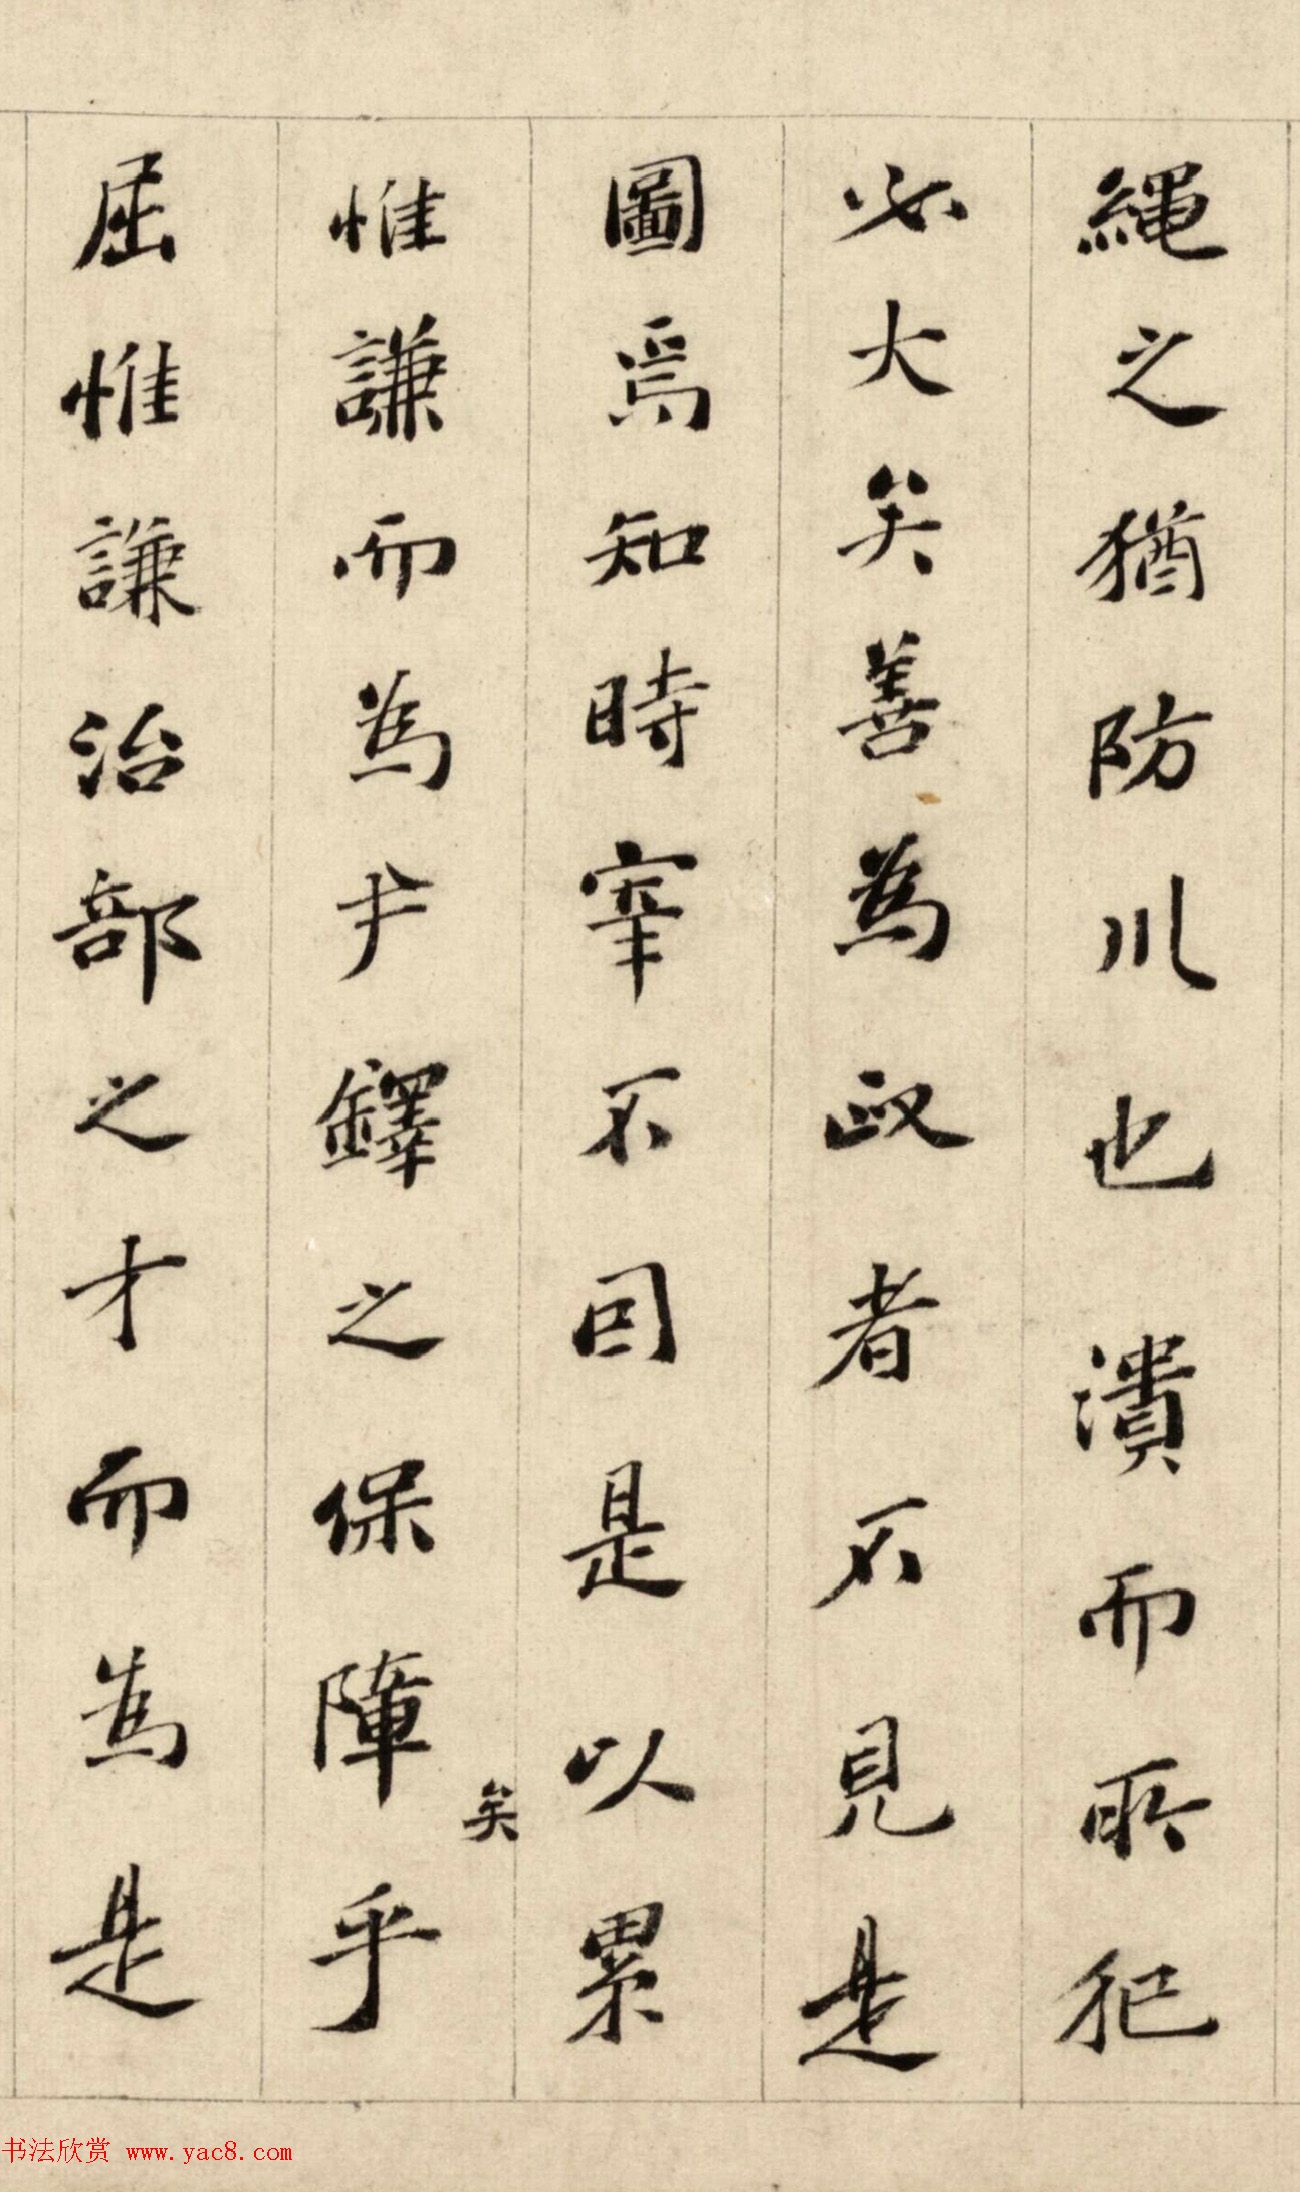 繩之猶防川也潰而所犯
必大矣善為政者不見是
圖焉知時宰不同是以累
惟謙而為尹鐸之保障乎
矣
屈惟謙治部之才而為是
书法欣赏 www.yac8.com